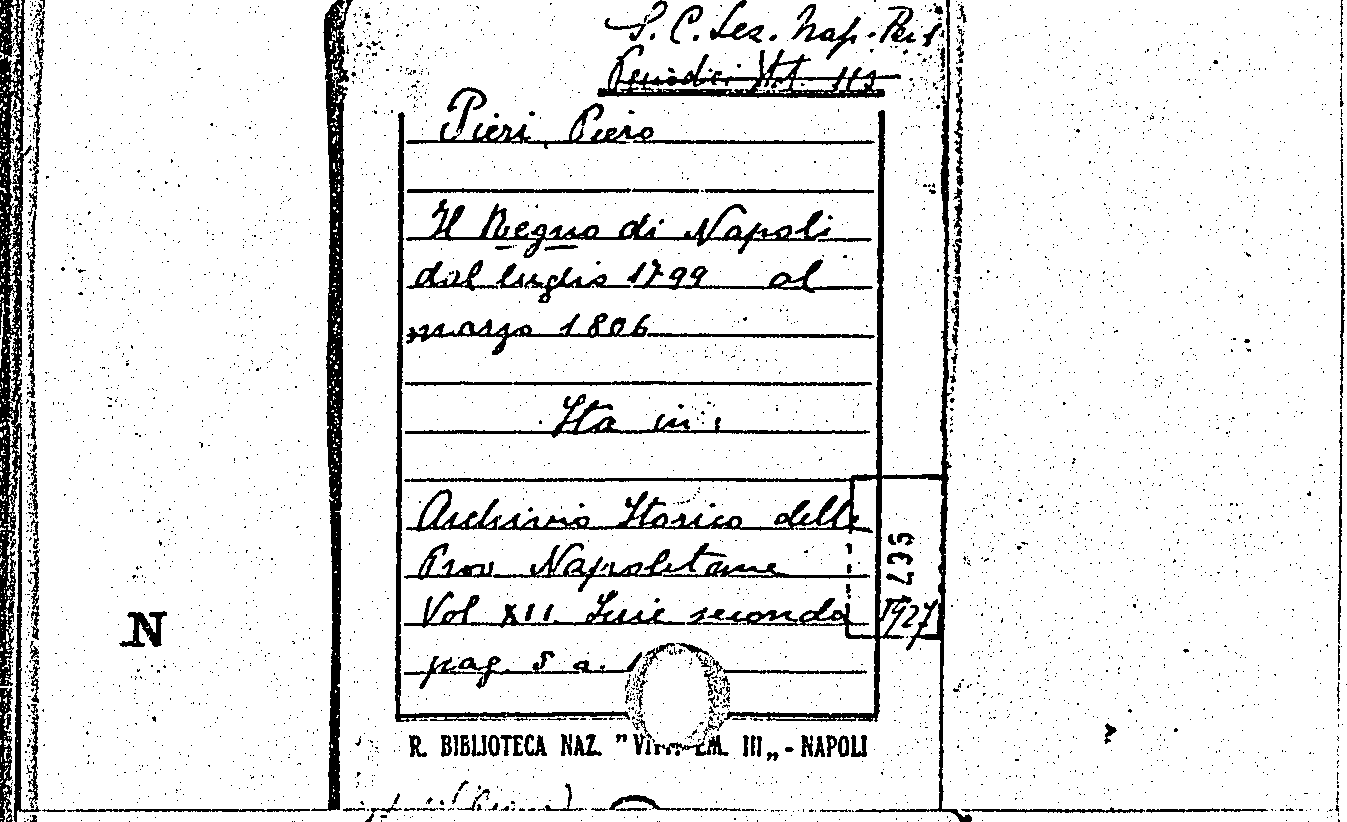 S. C. Sez. Nap. Per 1
Periodici It. 113
Pieri, Piero
Il Regno di Napoli
dal luglio 1799 al
marzo 1806
Sta in:
Archivio Storico delle
Prov. Napoletane
Vol XII. Serie seconda
1927
235
pag. 5 a.
N
R. BIBLIOTECA NAZ. " EM. III „ - NAPOLI